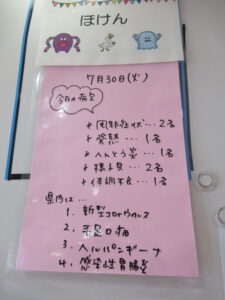 ほけん
7月30日(火)
今日の病欠
↳ 風邪症状…2名
↳ 発熱…1名
↳ へんとう炎…1名
↳ 様子見…2名
↳ 体調不良…1名
県内は…
1. 新型コロナウイルス
2. 手足口病
3. ヘルパンギーナ
4. 感染性胃腸炎